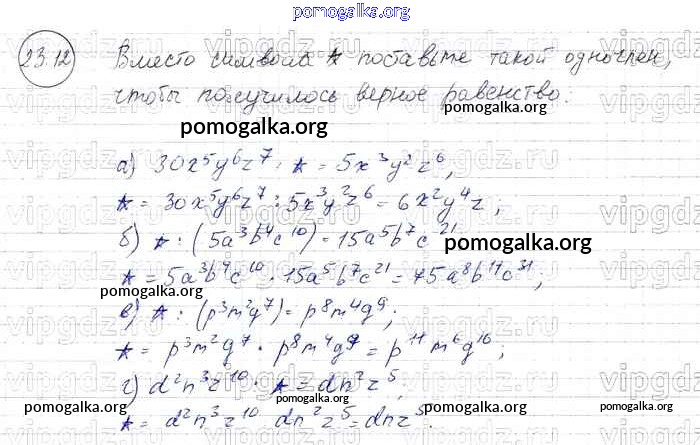 pomogalka.org
23.12 Вместо символа * поставьте такой одночлен,
чтобы получилось верное равенство:
pomogalka.org
а) 30x⁵y⁶z⁷ : * = 5x³y²z⁶,
* = 30x⁵y⁶z⁷ : 5x³y²z⁶ = 6x²y⁴z;
б) * : (5a³b⁴c¹⁰) = 15a⁵b⁷c²¹
pomogalka.org
* = 5a³b⁴c¹⁰ · 15a⁵b⁷c²¹ = 75a⁸b¹¹c³¹;
pomogalka.org
в) * : (p³m²g⁷) = p⁸m⁴g⁹;
* = p³m²g⁷ · p⁸m⁴g⁹ = p¹¹m⁶g¹⁶;
г) d²n³z¹⁰ : * = dn²z⁵,
pomogalka.org pomogalka.org pomogalka.org
* = d²n³z¹⁰ dn²z⁵ = dnz⁵.
vipgdz.ru